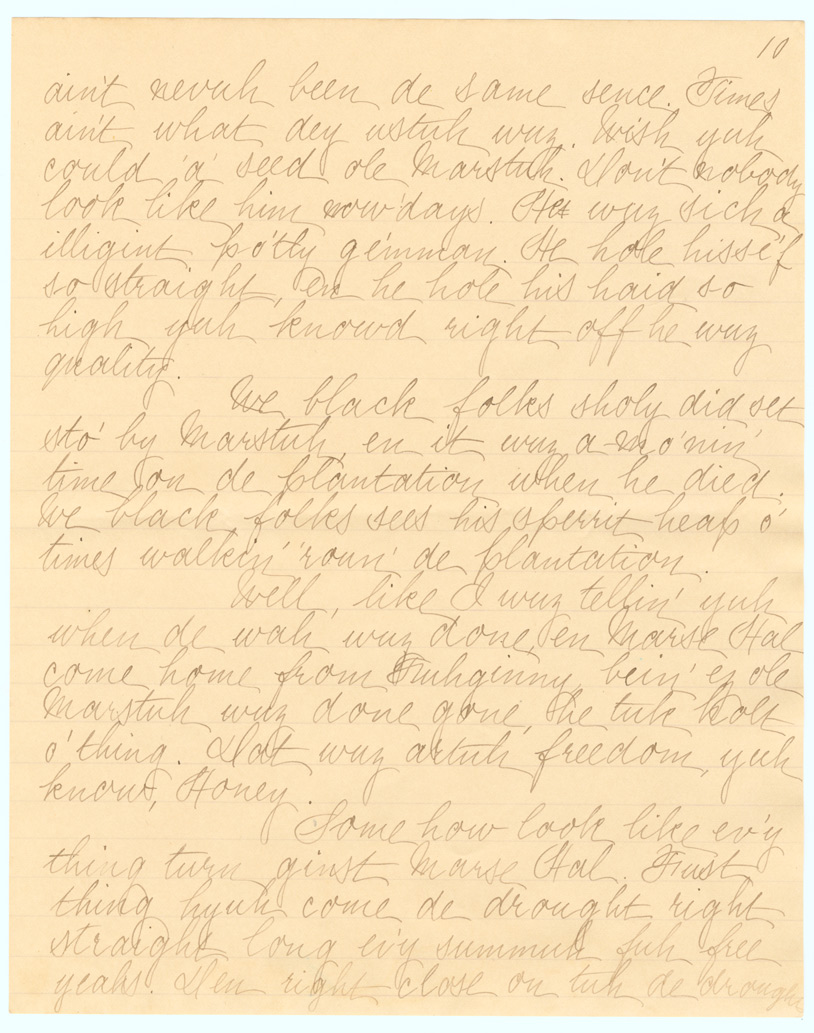 10
ain't nevuh been de same sence. Times
ain't what dey ustuh wuz. Wish yuh
could 'a' seed ole Marstuh. Don't nobody
look like him now'days. He wuz sich a
illigint po'tly gemman. He hole hisse'f
so straight, en he hole his haid so
high yuh knowd right off he wuz
quality.
We black folks sholy did set
sto' by Marstuh, en it wuz a mo'nin'
time on de plantation when he died.
We black folks sees his sperrit heap o'
times walkin' 'roun' de plantation.
Well, like I wuz tellin' yuh
when de wah wuz done, en Marse Hal
come home from Fuhginny, bein' ez ole
Marstuh wuz done gone, he tuk holt
o' thing. Dat wuz artuh freedom, yuh
knows, Honey.
Some how look like ev'y
thing turn ginst Marse Hal. Fust
thing hyuh come de drought right
straight long ev'y summuh fuh free
yeahs. Den right close on tuh de drought